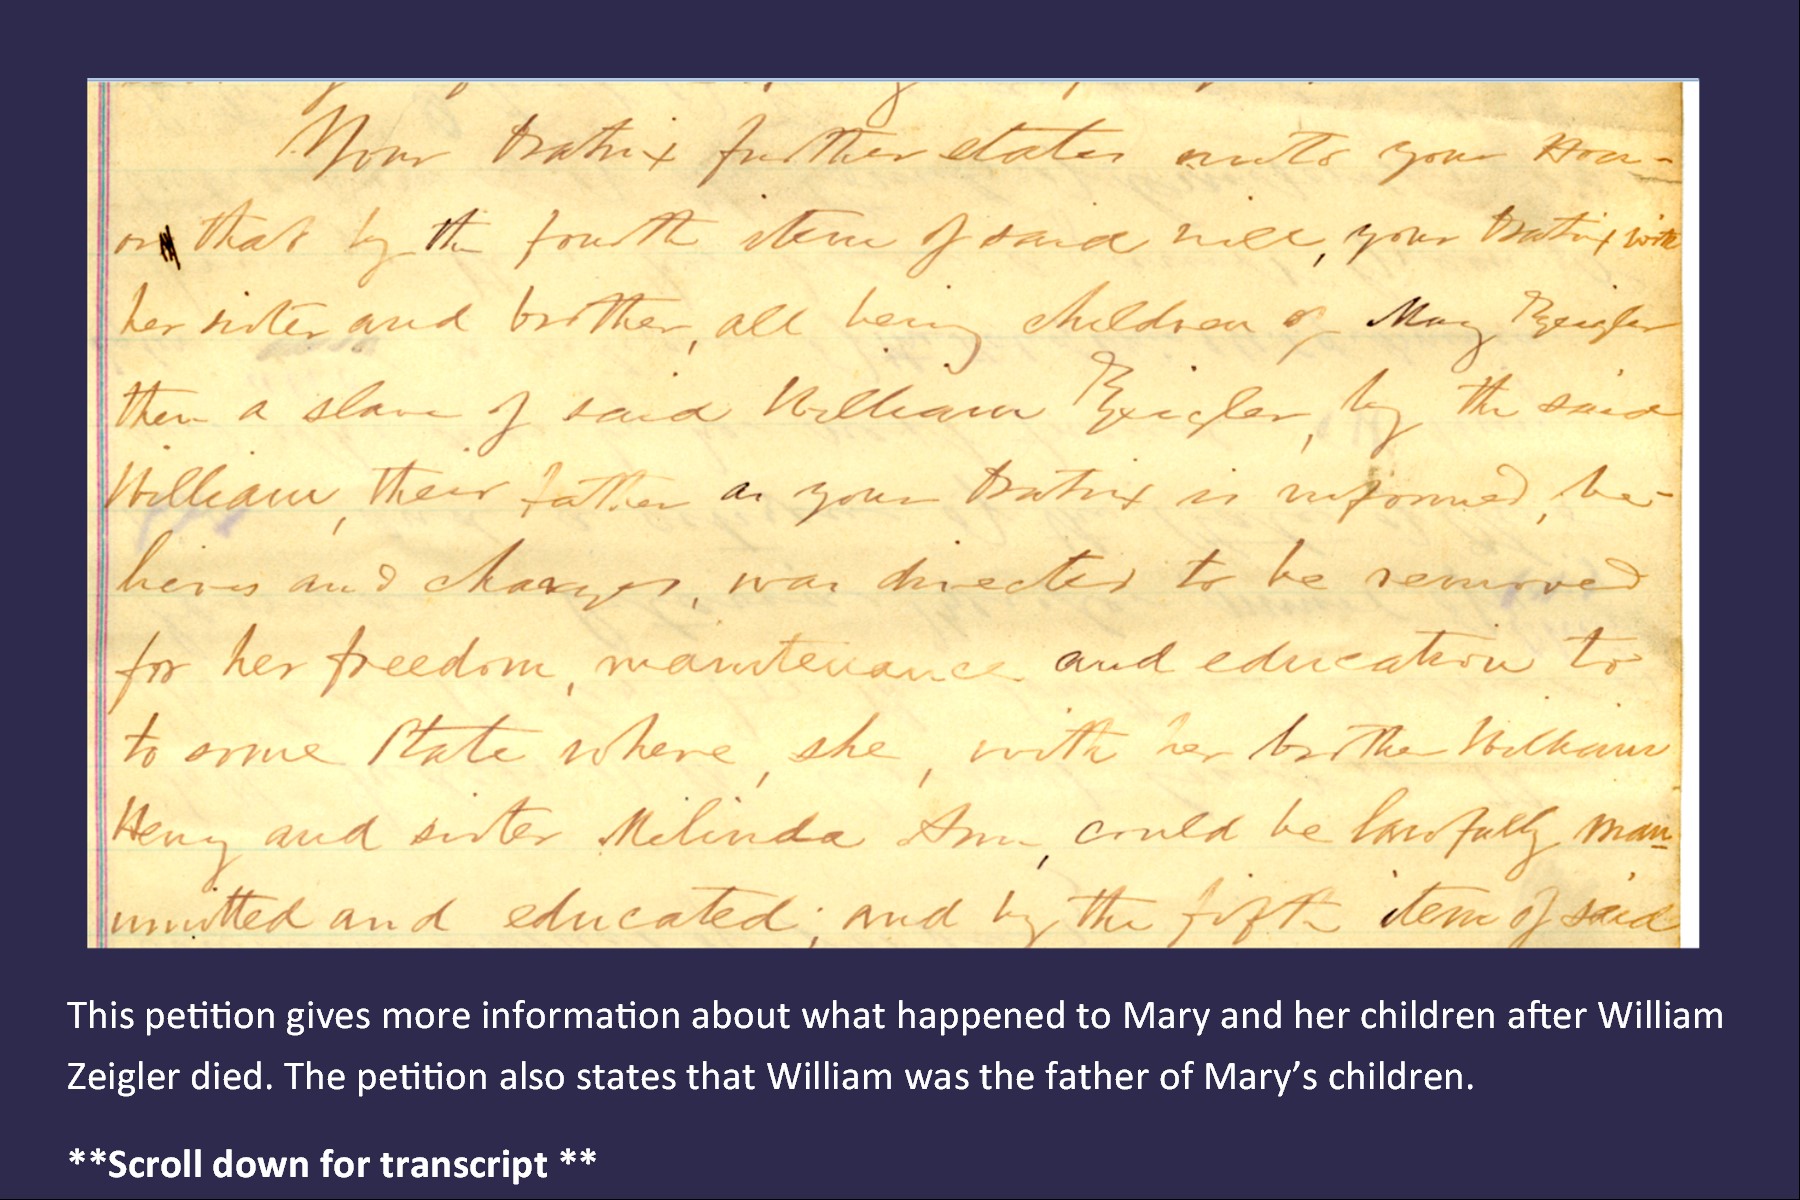 Your Oratrix further states unto your Hon-
or that by the fourth item of said will, your Oratrix with
her sister and brother, all being children of Mary Zeigler
then a slave of said William Zeigler, by the said
William, their father as your Oratrix is informed, be-
lieves and charges, was directed to be removed
for her freedom, maintenance and education to
to some State where, she, with her brother William
Henry and sister Milinda Ann, could be lawfully man-
umitted and educated; and by the fifth item of said
This petition gives more information about what happened to Mary and her children after William
Zeigler died. The petition also states that William was the father of Mary’s children.
**Scroll down for transcript **